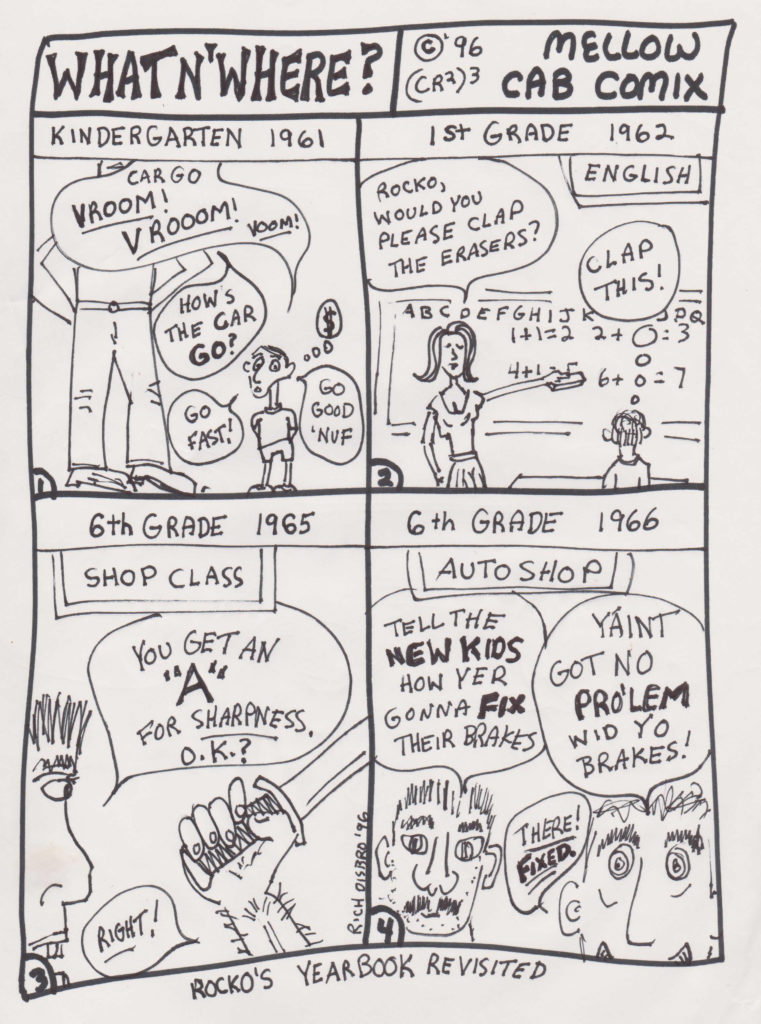 WHAT N' WHERE?
© '96
(CR²)³
MELLOW
CAB COMIX
KINDERGARTEN 1961
CAR GO
VROOM!
VROOOM!
VOOM!
HOW'S
THE CAR
GO?
$
GO
FAST!
GO
GOOD
'NUF
1
1ST GRADE 1962
ENGLISH
ROCKO,
WOULD YOU
PLEASE CLAP
THE ERASERS?
CLAP
THIS!
A B C D E F G H I J K
P Q
1+1=2 2+ =3
4+1=5 6+ =7
2
6th GRADE 1965
SHOP CLASS
YOU GET AN
"A"
FOR SHARPNESS.
O.K.?
RIGHT!
RICH DISBRO '96
3
6th GRADE 1966
AUTO SHOP
TELL THE
NEW KIDS
HOW YER
GONNA FIX
THEIR BRAKES
YAINT
GOT NO
PRO'LEM
WID YO
BRAKES!
THERE!
FIXED.
4
ROCKO'S YEARBOOK REVISITED